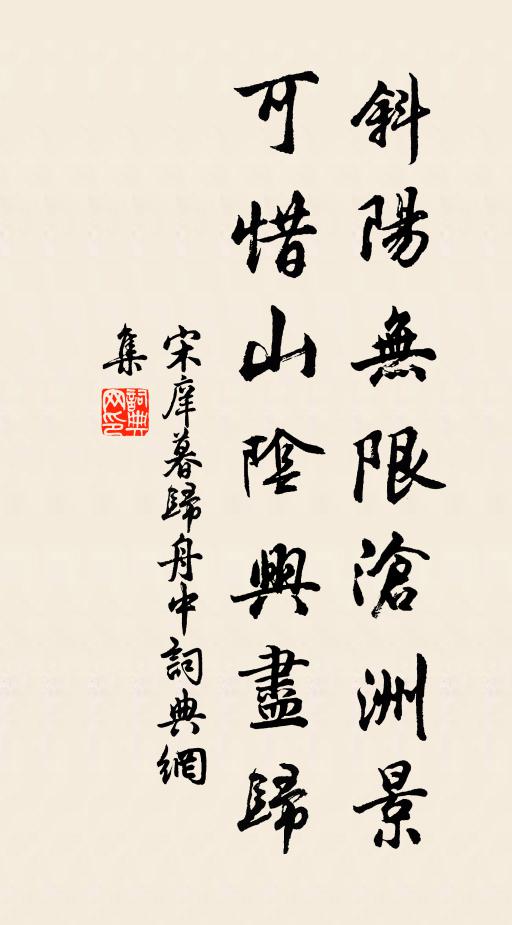 斜陽無限滄洲景
可惜山陰興盡歸
宋庠暮歸舟中詞典網
集
詞典
网印